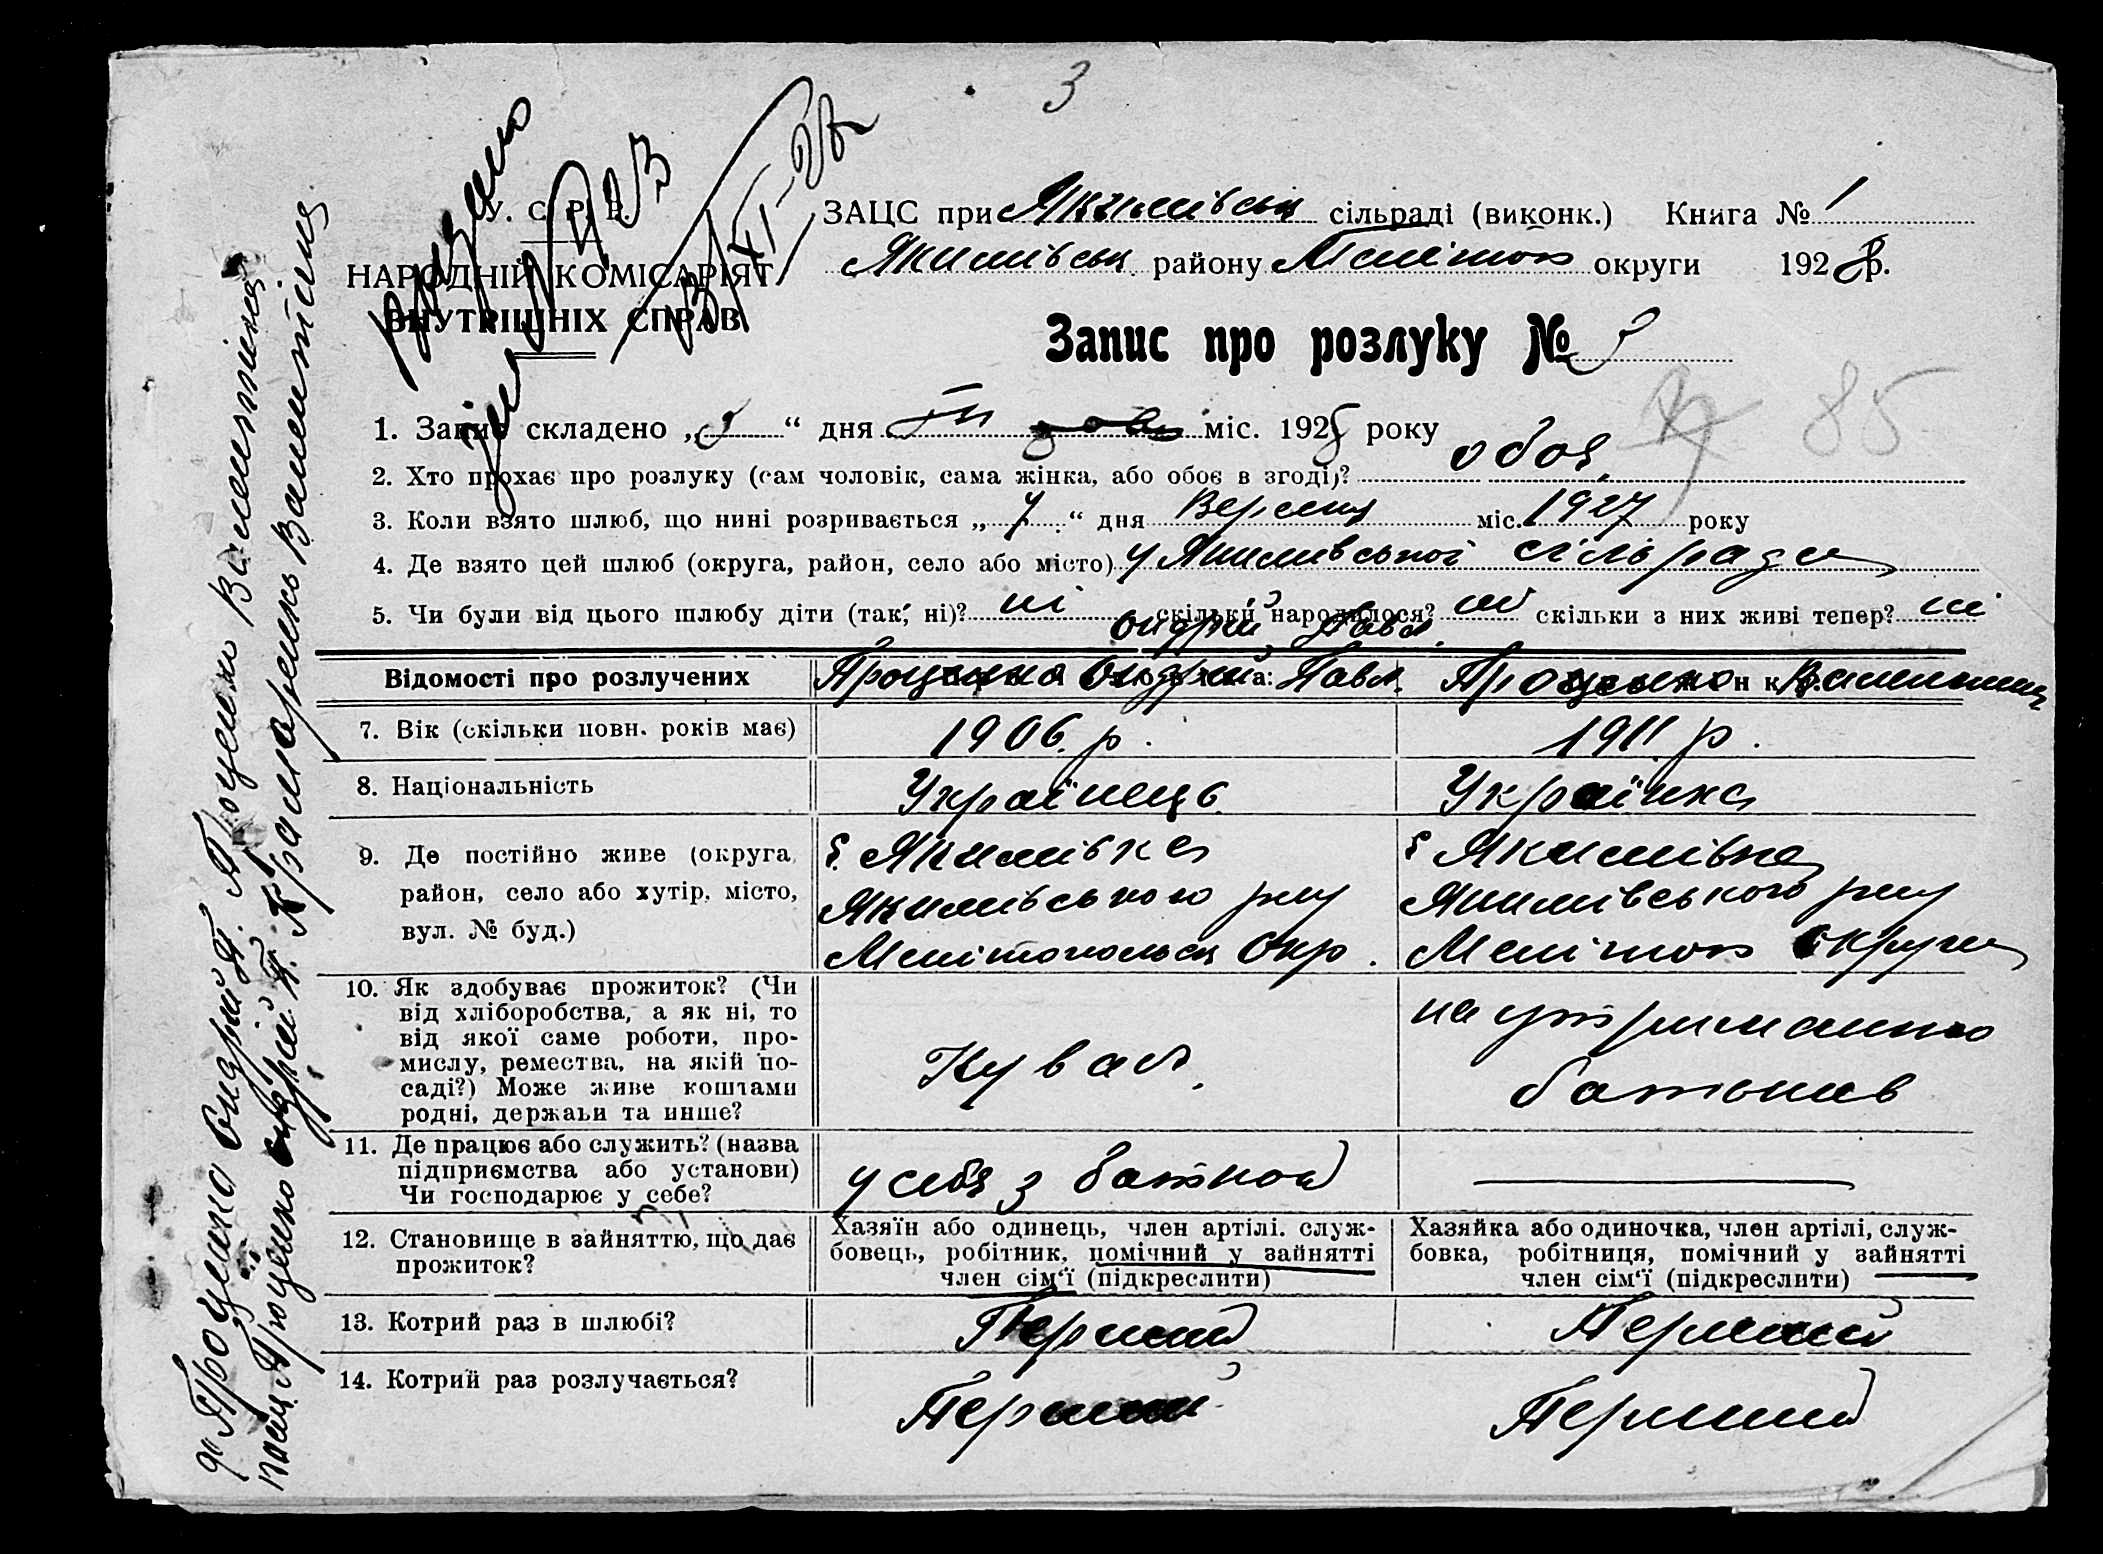 3
У. С. Р. Р.
НАРОДНІЙ КОМІСАРІЯТ
ВНУТРІШНІХ СПРАВ
ЗАЦС при Якимівськ сільраді (виконк.) Книга № 1
Якимівськ району Меліток округи 1928 р.
Запис про розлуку № 3
85
1. Запис складено „3“ дня міс. 1928 року
2. Хто прохає про розлуку (сам чоловік, сама жінка, або обоє в згоді)? обоя
3. Коли взято шлюб, що нині розривається „7“ дня Вересня міс. 1927 року
4. Де взято цей шлюб (округа, район, село або місто) у Якимивської сільради
5. Чи були від цього шлюбу діти (так, ні)? ні скільки народилося? ні скільки з них живі тепер? ні
Ондрій Павл.
Відомості про розлучених Проценко Ондрій Павл. Проценко Валентина
7. Вік (скільки повн. років має) 1906 р. 1911 р.
8. Національність Українець Українка
9. Де постійно живе (округа, район, село або хутір, місто, вул. № буд.)
с. Якимівка
Якимівського р-ну
Мелітопольськ Окр.
с Якимівка
Якимівського р-ну
Меліток Округи
10. Як здобуває прожиток? (Чи
від хліборобства, а як ні, то
від якої саме роботи, про-
мислу, ремества, на якій по-
саді?) Може живе коштами
родні, держави та инше?
Куваль
на утриманню
батьків
11. Де працює або служить? (назва
підприємства або установи)
Чи господарює у себе?
у себя з батком
12. Становище в зайняттю, що дає
прожиток?
Хазяїн або одинець, член артілі. служ-
бовець, робітник, помічний у зайнятті
член сім'ї (підкреслити)
Хазяйка або одиночка, член артілі, служ-
бовка, робітниця, помічний у зайнятті
член сім'ї (підкреслити)
13. Котрий раз в шлюбі? Перший Перший
14. Котрий раз розлучається? Перший Перший
Проценко Ондрій П. Проценко Валентина
Проценко Ондрій П. Валентина